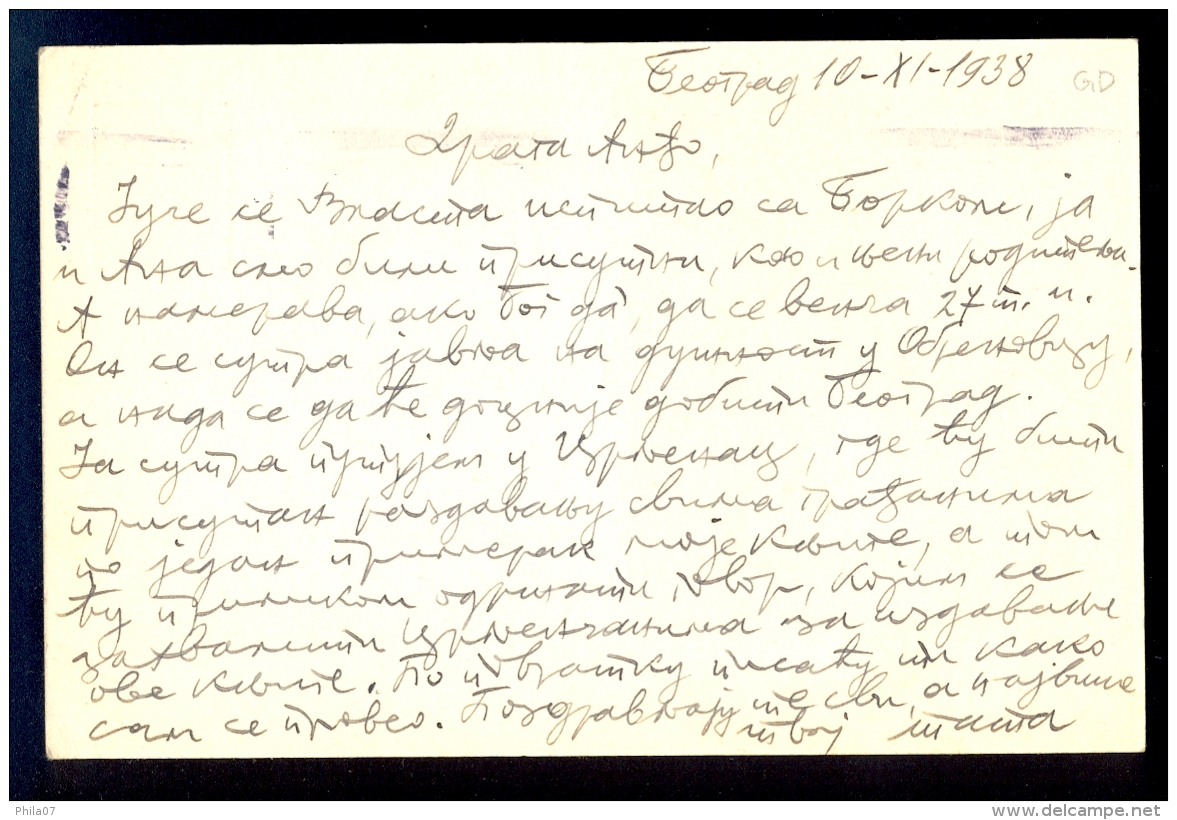 Београд 10-XI-1938
GD
Драги Анђо,
Јуче се Власта испитао са Борком, ја
и Ана смо били присутни, као и њени родитељи.
А намерава, ако Бог да, да се венча 27 т. м.
Он се сутра јавља на дужност у Обреновцу,
а нада се да ће доцније добити Београд.
Ја сутра путујем у Црљенац, где ћу бити
присутан раздавању свима грађанима
по један примерак моје књиге, а том
ћу приликом одржати говор, којим се
захвалити Црљенчанима за издавање
ове књиге. По повратку писаћу ти како
сам се провео. Поздрављају те сви, а највише
твој тата
Phila07
http://www.delcampe.net